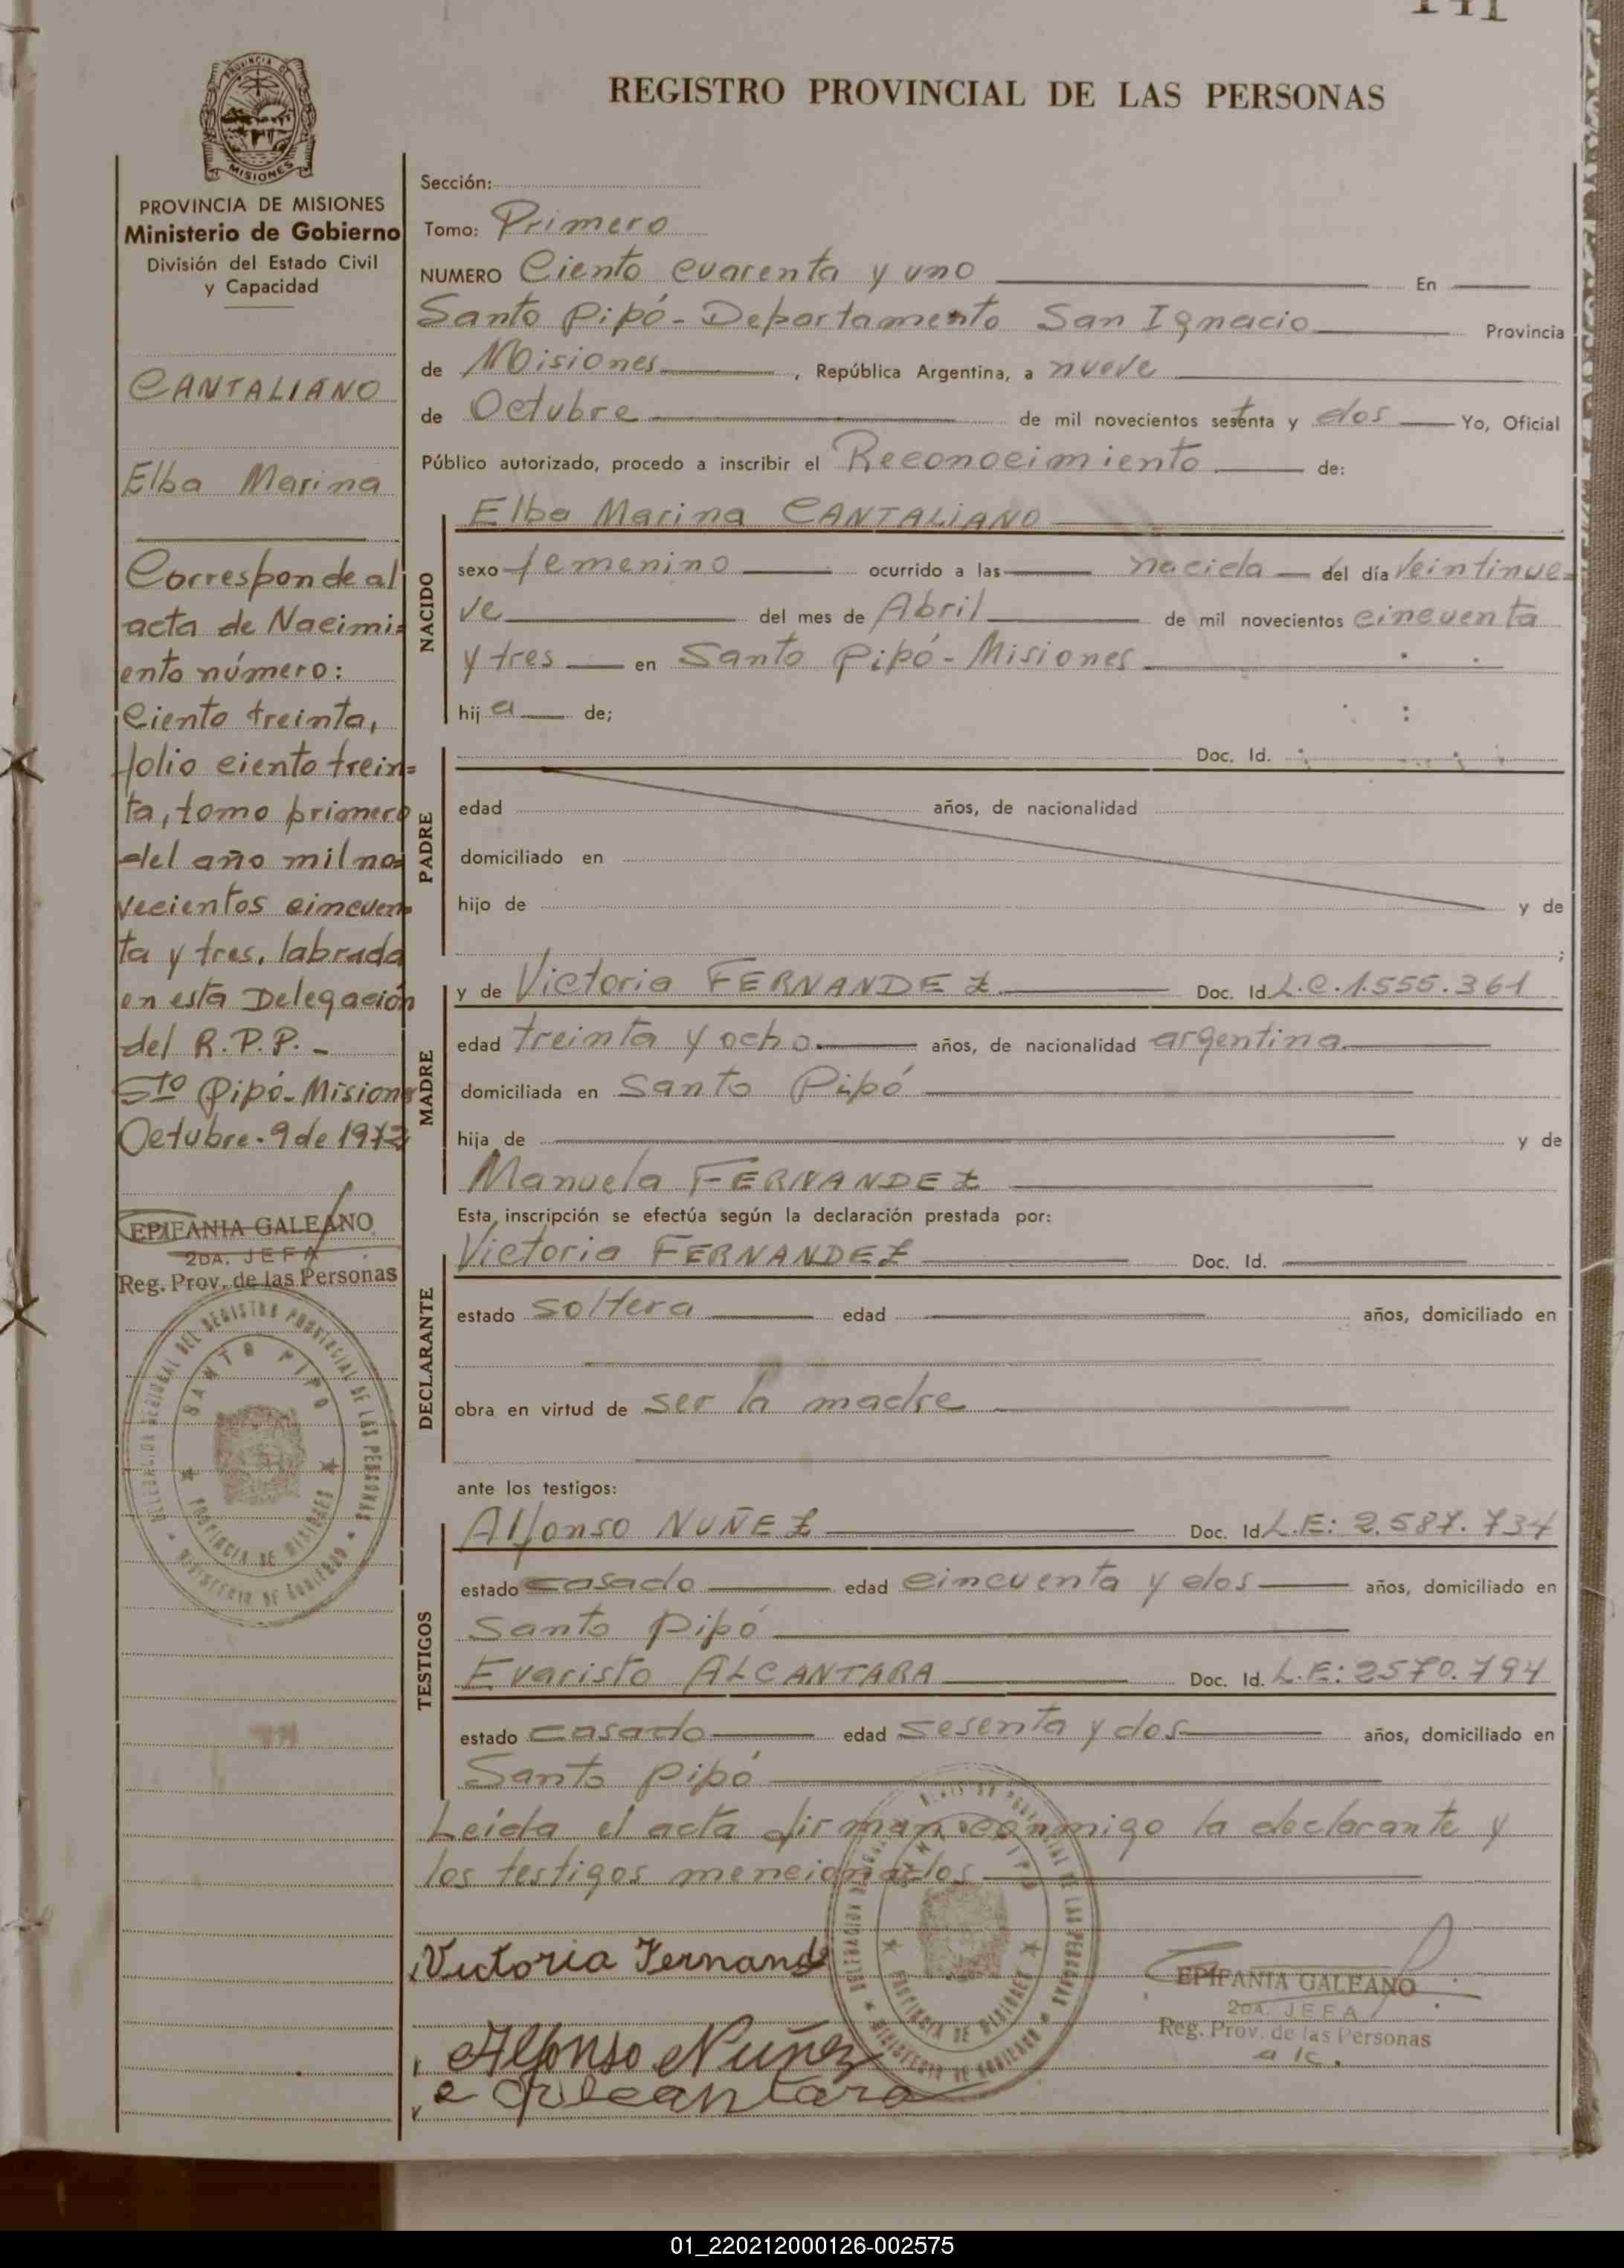 141
PROVINCIA DE
MISIONES
REGISTRO PROVINCIAL DE LAS PERSONAS
PROVINCIA DE MISIONES
Ministerio de Gobierno
División del Estado Civil
y Capacidad
CANTALIANO
Elba Marina
Corresponde al
acta de Nacimi=
ento número:
Ciento treinta,
folio ciento trein=
ta, tomo primero
del año mil no=
vecientos cincuen
ta y tres, labrada
en esta Delegación
del R.P.P. -
Sto Pipó-Misiones
Octubre-9 de 1972
EPIFANIA GALEANO
2DA. JEFA
Reg. Prov. de las Personas
DELEGACION REGIONAL DEL REGISTRO PROVINCIAL DE LAS PERSONAS
SANTO PIPO
PROVINCIA DE MISIONES
MINISTERIO DE GOBIERNO
Sección:
Tomo: Primero
NUMERO Ciento cuarenta y uno En
Santo Pipó-Departamento San Ignacio Provincia
de Misiones, República Argentina, a nueve
de Octubre de mil novecientos setenta y dos Yo, Oficial
Público autorizado, procedo a inscribir el Reconocimiento de:
NACIDO
Elba Marina CANTALIANO
sexo femenino ocurrido a las nacida del día Veintinue=
ve del mes de Abril de mil novecientos cincuenta
y tres en Santo Pipó-Misiones
hija de;
PADRE
Doc. Id.
edad años, de nacionalidad
domiciliado en
hijo de y de
;
MADRE
y de Victoria FERNANDEZ Doc. Id. L.C.1.555.361
edad treinta y ocho años, de nacionalidad argentina
domiciliada en Santo Pipó
hija de y de
Manuela FERNANDEZ
Esta inscripción se efectúa según la declaración prestada por:
DECLARANTE
Victoria FERNANDEZ Doc. Id.
estado soltera edad años, domiciliado en
obra en virtud de ser la madre
ante los testigos:
TESTIGOS
Alfonso NUÑEZ Doc. Id. L.E: 2.587.734
estado casado edad cincuenta y dos años, domiciliado en
Santo Pipó
Evaristo ALCANTARA Doc. Id. L.E: 2570.794
estado casado edad sesenta y dos años, domiciliado en
Santo Pipó
Leída el acta firman conmigo la declarante y
los testigos mencionados
Victoria Fernand
Alfonso Nuñez
e Alcantara
DELEGACION REGIONAL DEL REGISTRO PROVINCIAL DE LAS PERSONAS
SANTO PIPO
PROVINCIA DE MISIONES
MINISTERIO DE GOBIERNO
EPIFANIA GALEANO
2DA. JEFA
Reg. Prov. de las Personas
01_220212000126-002575